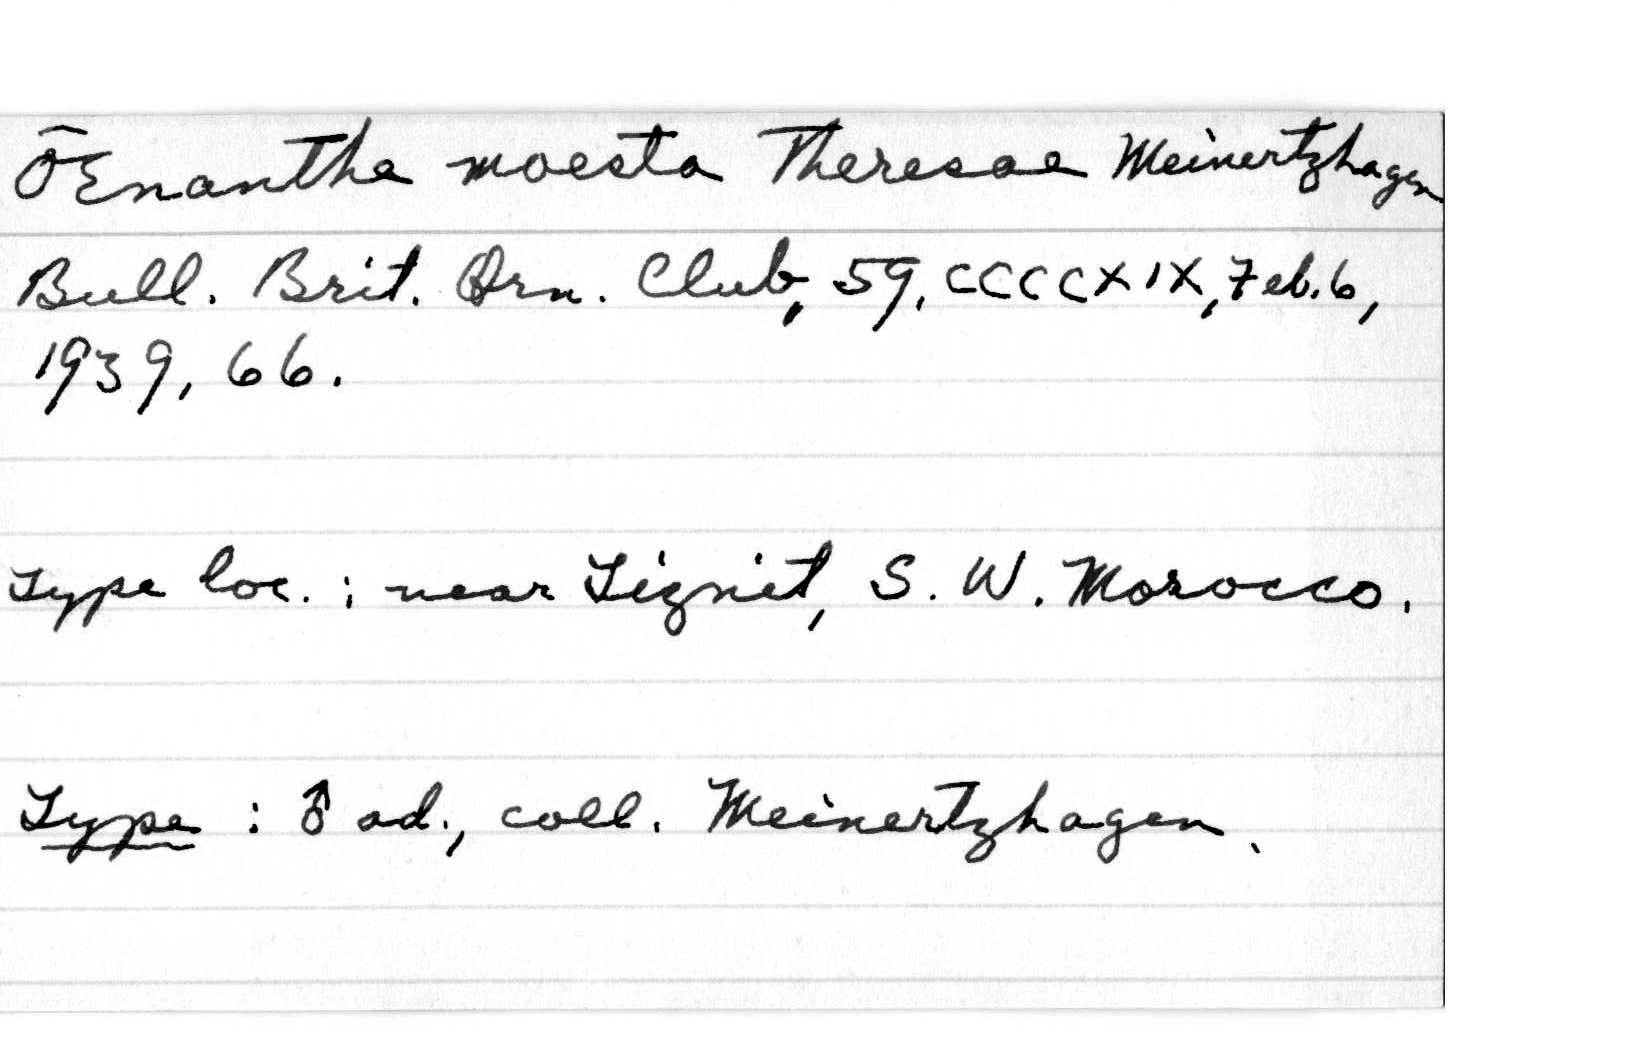 Œnanthe moesta Theresae Meinertzhagen
Bull. Brit. Orn. Club, 59, CCCCXIX, Feb. 6,
1939, 66.
Type loc. : near Tiznit, S. W. Morocco.
Type : ♂ ad., coll. Meinertzhagen.